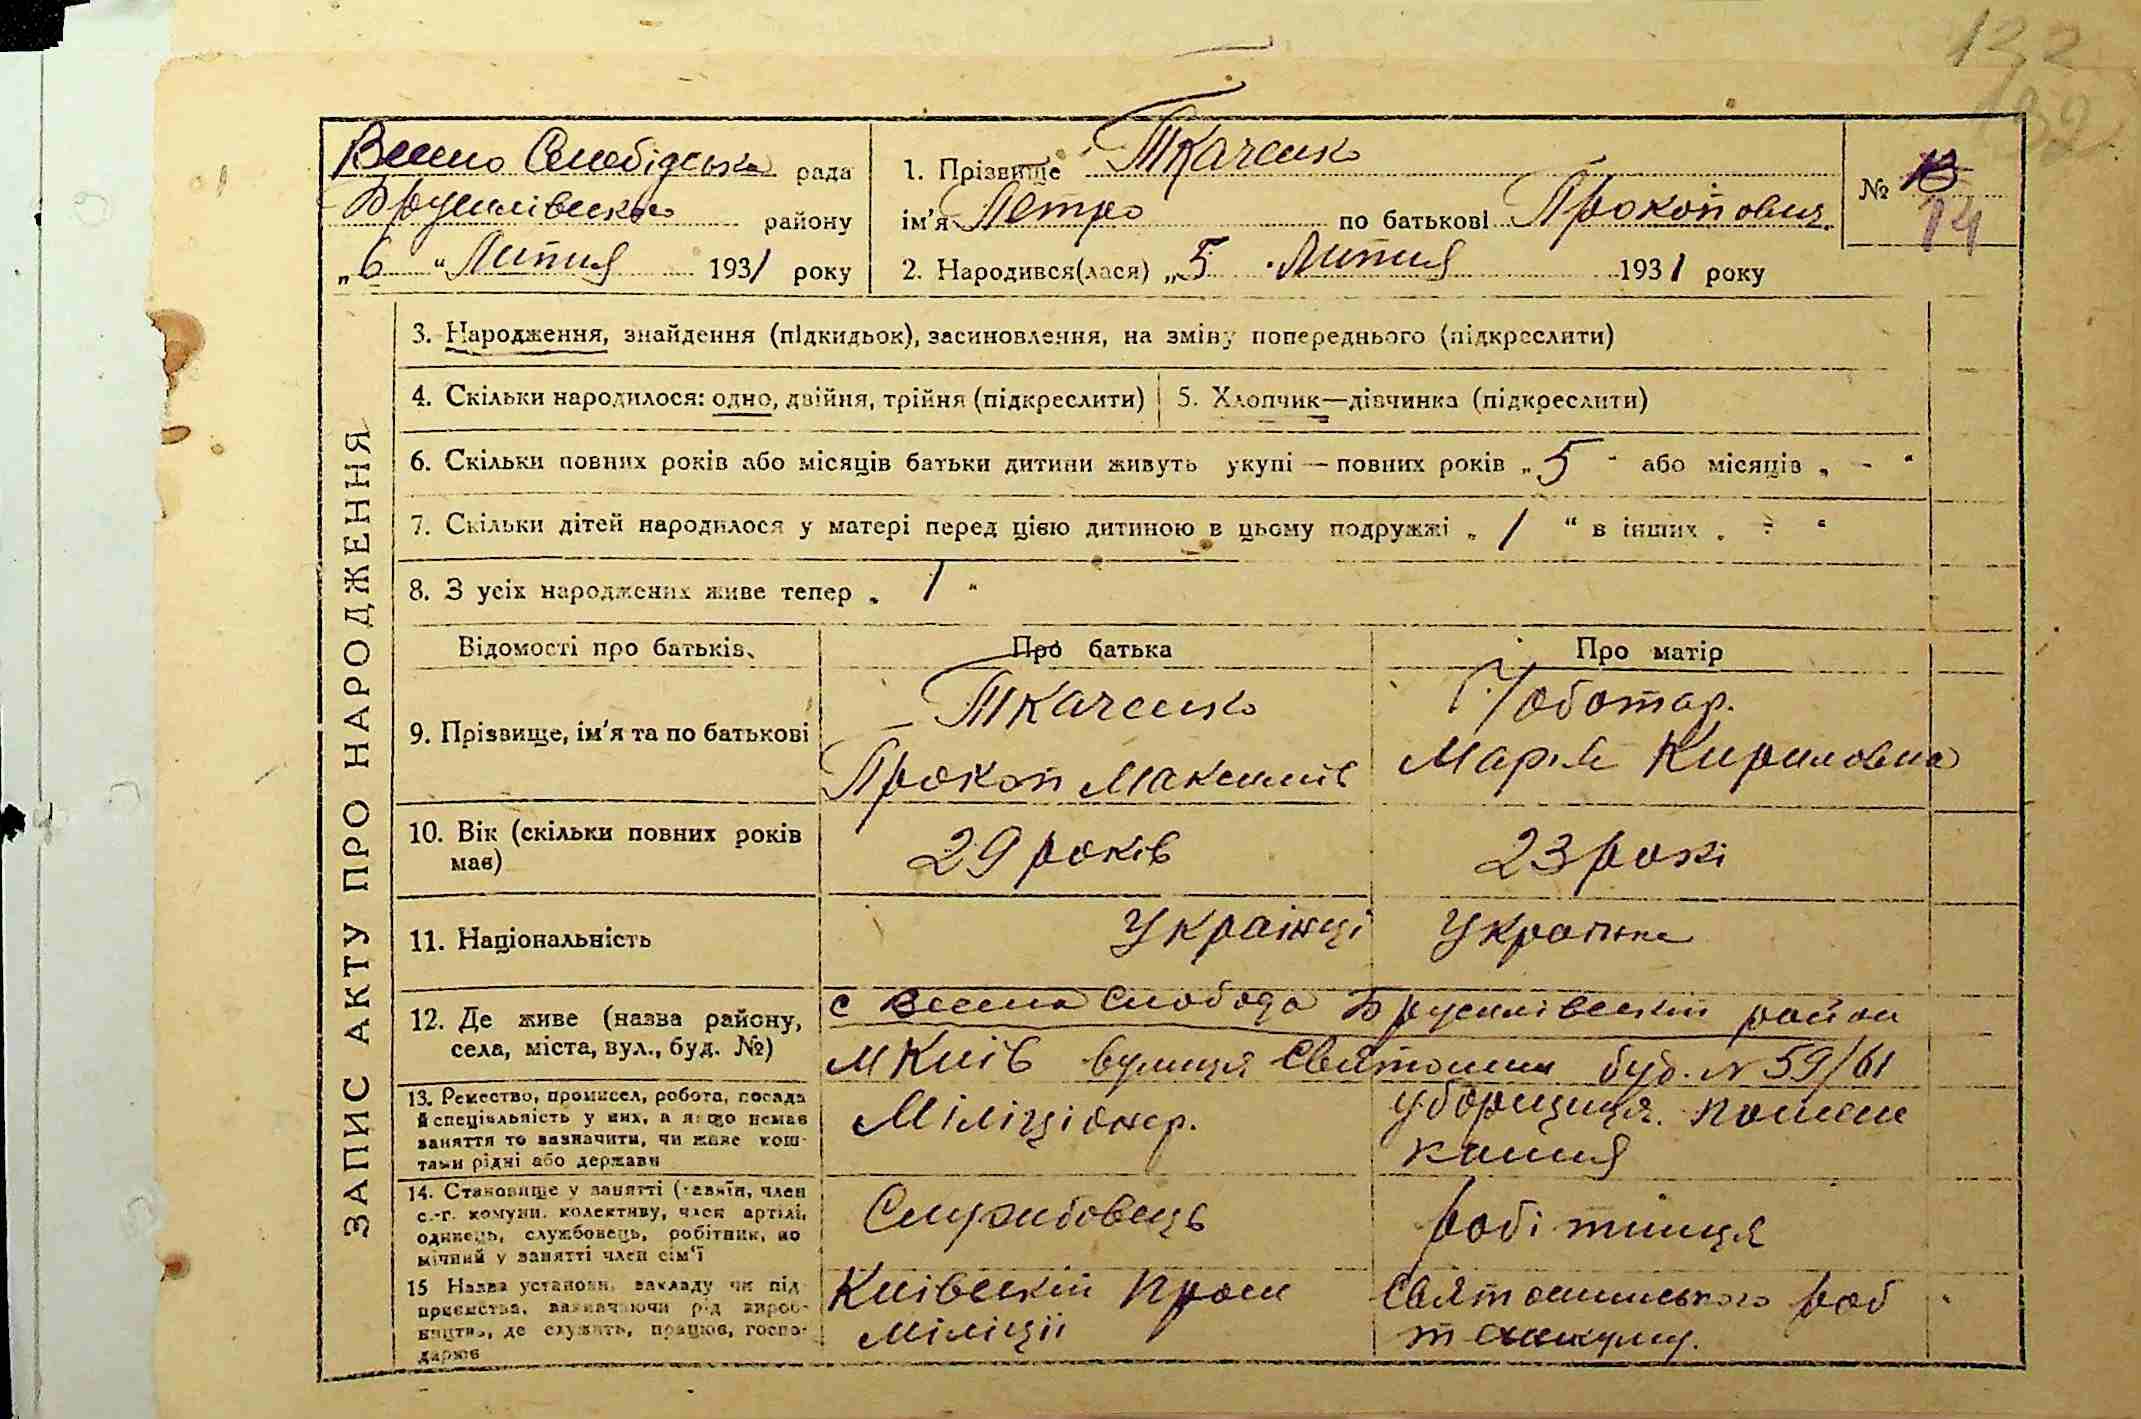 132
132
Весело Слобідська рада
Брусилівсько району
„6 “ Липня 1931 року
1. Прізвище Ткаченко
ім'я Петро по батькові Прокопович.
2. Народився(лася) „5 Липня 1931 року
№ 13
14
ЗАПИС АКТУ ПРО НАРОДЖЕННЯ
3. Народження, знайдення (підкидьок), засиновлення, на зміну попереднього (підкреслити)
4. Скільки народилося: одно, двійня, трійня (підкреслити)
5. Хлопчик—дівчинка (підкреслити)
6. Скільки повних років або місяців батьки дитини живуть укупі — повних років „ 5 “ або місяців „ - “
7. Скільки дітей народилося у матері перед цією дитиною в цьому подружжі „ 1 “ в інших „ - “
8. З усіх народжених живе тепер „ 1 “
Відомості про батьків.
Про батька
Про матір
9. Прізвище, ім'я та по батькові
Ткаченко
Прокоп Максимів
Чоботар.
Марія Кириловна
10. Вік (скільки повних років
має)
29 років
23 рокі
11. Національність
Українці
Українка
12. Де живе (назва району,
села, міста, вул., буд. №)
с Весела Слобода Брусилівский район
м Киів вулиця Святошин буд. № 59/61
13. Ремество, промисел, робота, посада
й спеціяльність у них, а якщо немає
заняття то зазначити, чи живе кош-
тами рідні або держави
Міліціонер.
Уборщиця. помеш
кання
14. Становище у занятті (хазяїн, член
с.-г. комуни, колективу, член артілі,
одинець, службовець, робітник, по
мічний у занятті член сім'ї
Службовець
робітниця
15 Назва установи, закладу чи під-
приємства, зазначаючи рід вироб-
ництва, де служить, працює, госпо-
дарює
Киівский Пром
міліціі
Святошинського роб
технікуму.